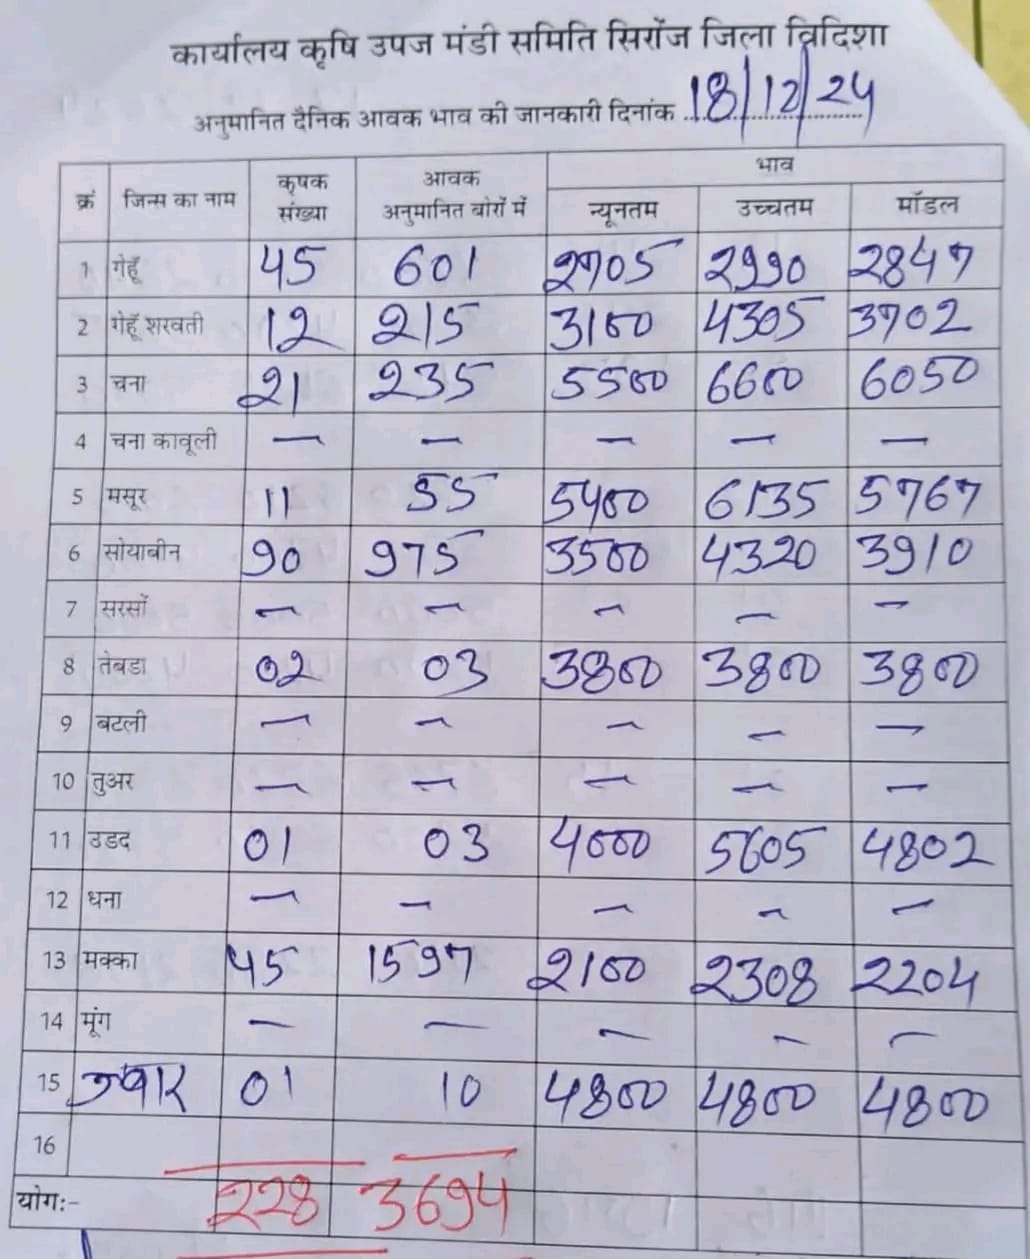 कार्यालय कृषि उपज मंडी समिति सिरोंज जिला विदिशा
अनुमानित दैनिक आवक भाव की जानकारी दिनांक 18/12/24
क्रं जिन्स का नाम कृषक संख्या आवक अनुमानित बोरों में भाव
न्यूनतम उच्चतम मॉडल
1 गेहूँ 45 601 2705 2990 2847
2 गेहूँ शरवती 12 215 3100 4305 3702
3 चना 21 235 5500 6600 6050
4 चना कावूली — — — — —
5 मसूर 11 55 5400 6135 5767
6 सोयाबीन 90 975 3500 4320 3910
7 सरसों — — — — —
8 तेबडा 02 03 3800 3800 3800
9 बटली — — — — —
10 तुअर — — — — —
11 उडद 01 03 4000 5605 4802
12 धना — — — — —
13 मक्का 45 1597 2100 2308 2204
14 मूंग — — — — —
15 ज्वार 01 10 4800 4800 4800
16
योगः- 228 3694